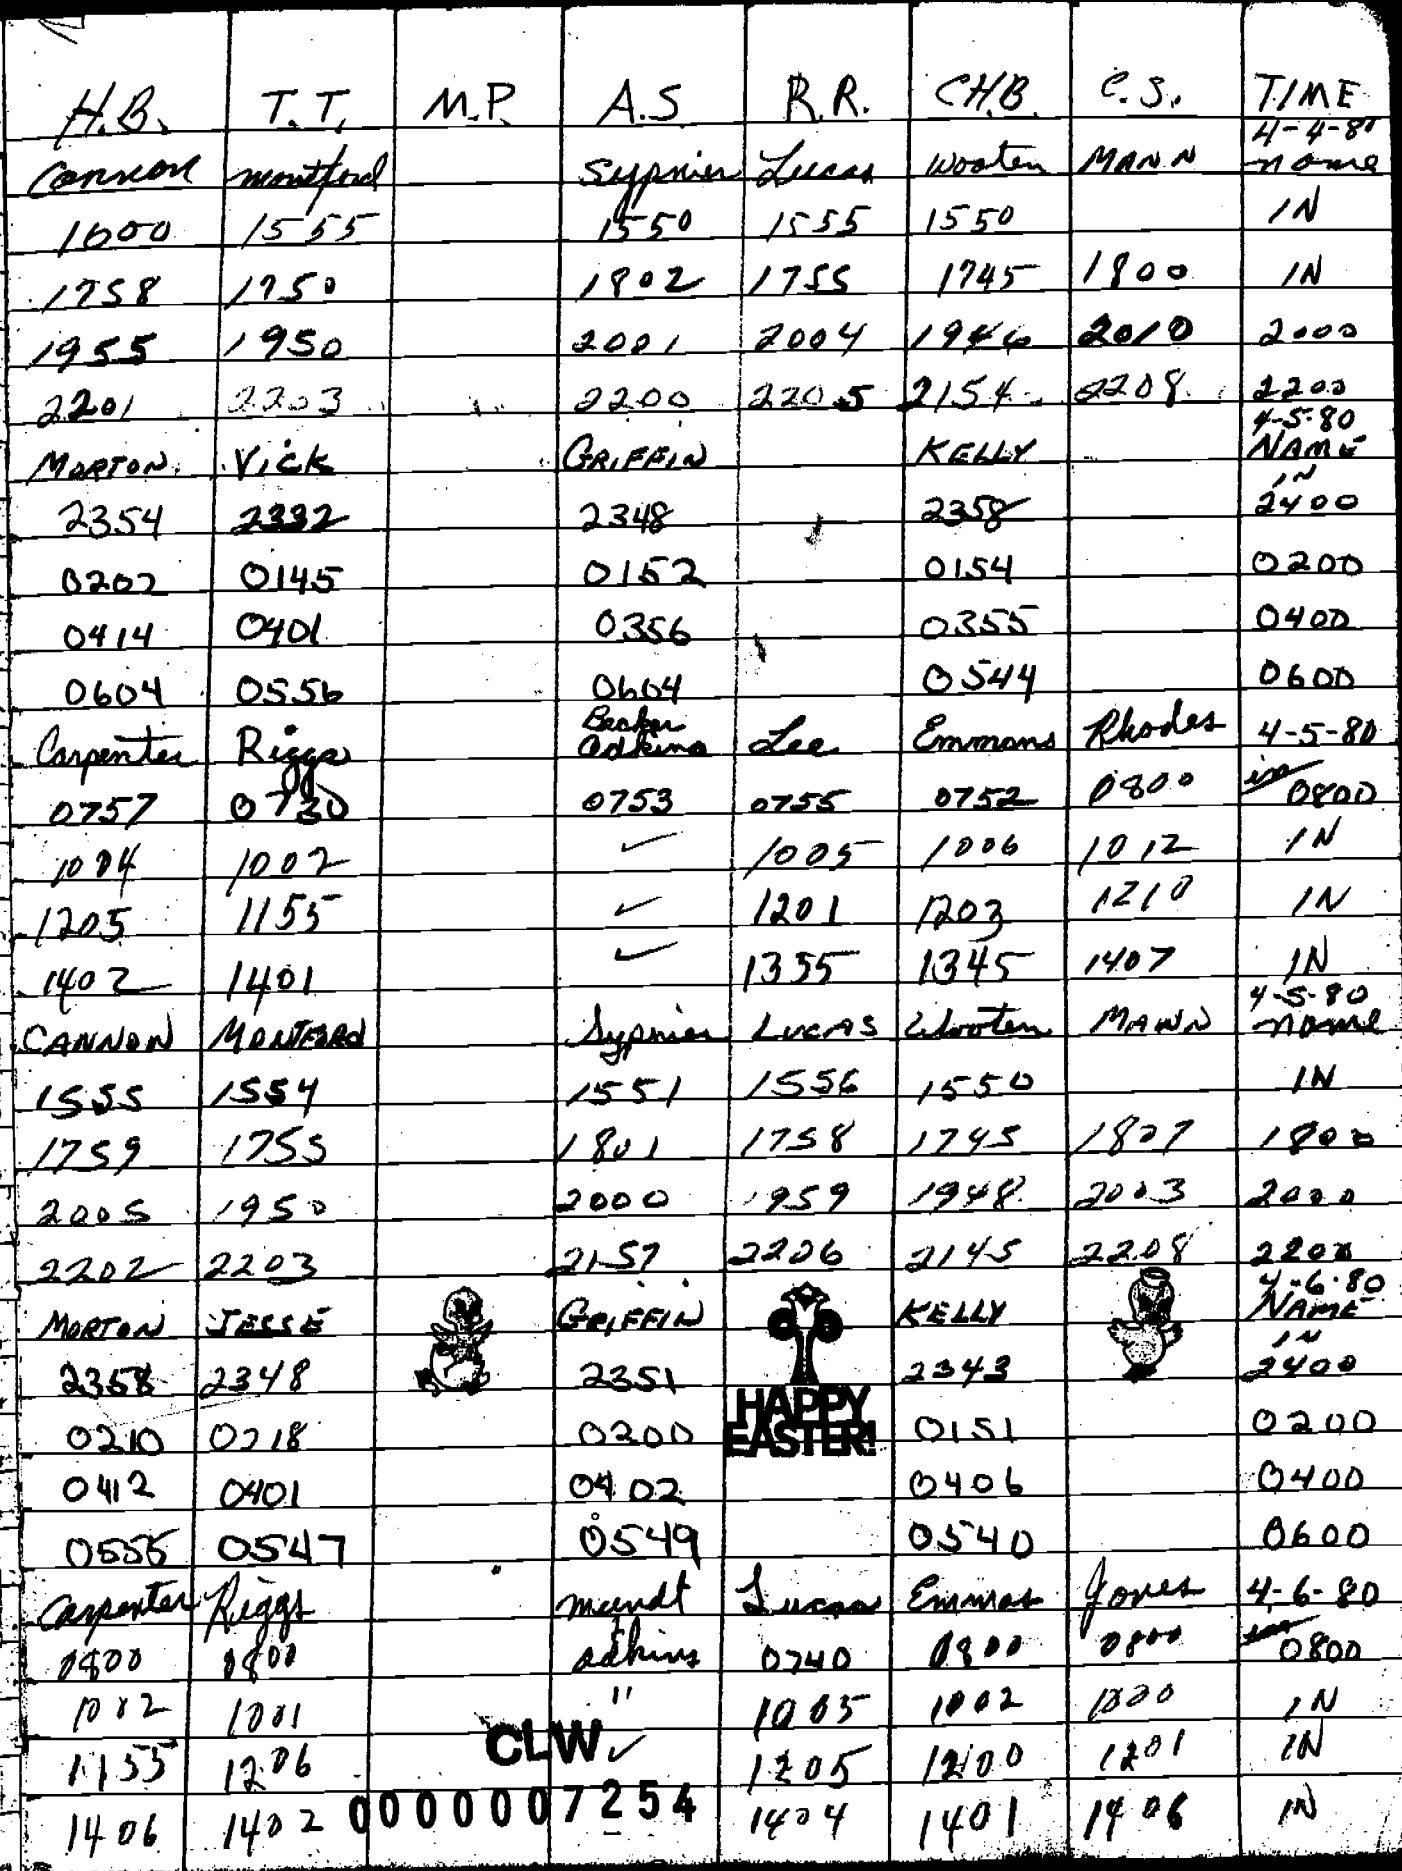 H.B. T.T. M.P. A.S R.R. CHB. C.S. TIME
4-4-80
Cannon Montford Sypnier Lucas Wooten MANN name
1600 1555 1550 1555 1550 IN
1758 1750 1802 1755 1745 1800 IN
1955 1950 2001 2004 1946 2010 2000
2201 2203 2200 2205 2154 2208 2200
4-5-80
MORTON VICK GRIFFIN KELLY NAME
IN
2354 2332 2348 2358 2400
0202 0145 0152 0154 0200
0414 0401 0356 0355 0400
0604 0556 0604 0544 0600
Becker
Carpenter Riggs Adkins Lee Emmons Rhodes 4-5-80
in
0757 0730 0753 0755 0752 0800 0800
1004 1002 ✓ 1005 1006 1012 IN
1205 1155 ✓ 1201 1203 1210 IN
1402 1401 ✓ 1355 1345 1407 IN
4-5-80
CANNON MONTFORD Sypnier LUCAS Wooten MANN name
1555 1554 1551 1556 1550 IN
1759 1755 1801 1758 1745 1807 1800
2005 1950 2000 1959 1948 2003 2000
2202 2203 2157 2206 2145 2208 2200
4-6-80
MORTON JESSE GRIFFIN KELLY NAME
IN
2358 2348 2351 2343 2400
HAPPY
EASTER!
0210 0218 0200 0151 0200
0412 0401 0402 0406 0400
0555 0547 0549 0540 0600
Carpenter Riggs Mundt Lucas Emmos Jones 4-6-80
0800 0800 Adkins 0740 0800 0800 0800
1002 1001 " 1005 1002 1000 IN
CLW
1155 1206 ✓ 1205 1200 1201 IN
0000007254
1406 1402 1404 1401 1406 IN